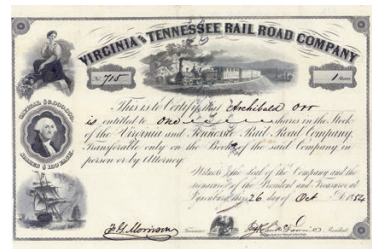 VIRGINIA AND TENNESSEE RAIL ROAD COMPANY
No. 715
1 Shares
This is to Certify that Archibald Orr
is entitled to One shares in the Stock
of the Virginia and Tennessee Rail Road Company,
Transferable only on the Books of the said Company in
person or by Attorney.
Witness the Seal of the Company and the
signature of the President and Treasurer at
Lynchburg this 26 day of Oct 1854
Treasurer
President
CAPITAL $3,000,000.
SHARES $100 EACH.